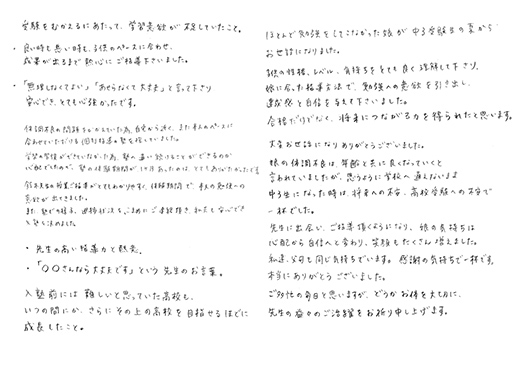 受験をむかえるにあたって、学習意欲が不足していたこと。
・良い時も悪い時も、子供のペースに合わせ、
成果が出るまで熱心にご指導下さいました。
・「無理しなくてよい」「あせらなくて大丈夫」と言って下さり
安心でき、とても心強かったです。
体調不良の問題をかかえていた為、自宅から近く、また本人のペースに
合わせていただける個別指導の塾を探していました。
学習の習慣ができていなかった為、塾へ通い続けることができるのか
心配でしたので、塾の体験期間が
鈴木先生の授業ご指導がとてもわかりやすく、体験期間で、本人の勉強への
意欲が出てきました。
また、塾での様子、進捗状況もこまめにご連絡頂き、私共も安心でき
入塾を決めました。
・先生の高い指導力と熱意。
・「〇〇さんなら大丈夫です」という先生のお言葉。
入塾前には難しいと思っていた高校も、
いつの間にか、さらにその上の高校を目指せるほどに
成長したこと。
ほとんど勉強をしてこなかった娘が中3受験生の夏から
お世話になりました。
娘の性格、レベル、気持ちをとても良く理解して下さり、
娘に合った指導方法で、勉強への意欲を引き出し、
達成感と自信を与えて下さいました。
合格だけでなく、将来につながる力を得られたと思います。
大変お世話になりありがとうございました。
娘の体調不良は、年齢と共に良くなっていくと
言われていましたが、思うように学校へ通えないまま
中3生になった時は、将来への不安、高校受験への不安で
一杯でした。
先生に出会い、ご指導頂くようになり、娘の気持ちは
心配から自信へと変わり、笑顔もたくさん増えました。
私達父母も同じ気持ちでいます。感謝の気持ちで一杯です。
本当にありがとうございました。
ご多忙の毎日と思いますが、どうかお体を大切に、
先生の益々のご活躍をお祈り申し上げます。